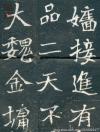 嬙接進有
品二天不
大魏金墉